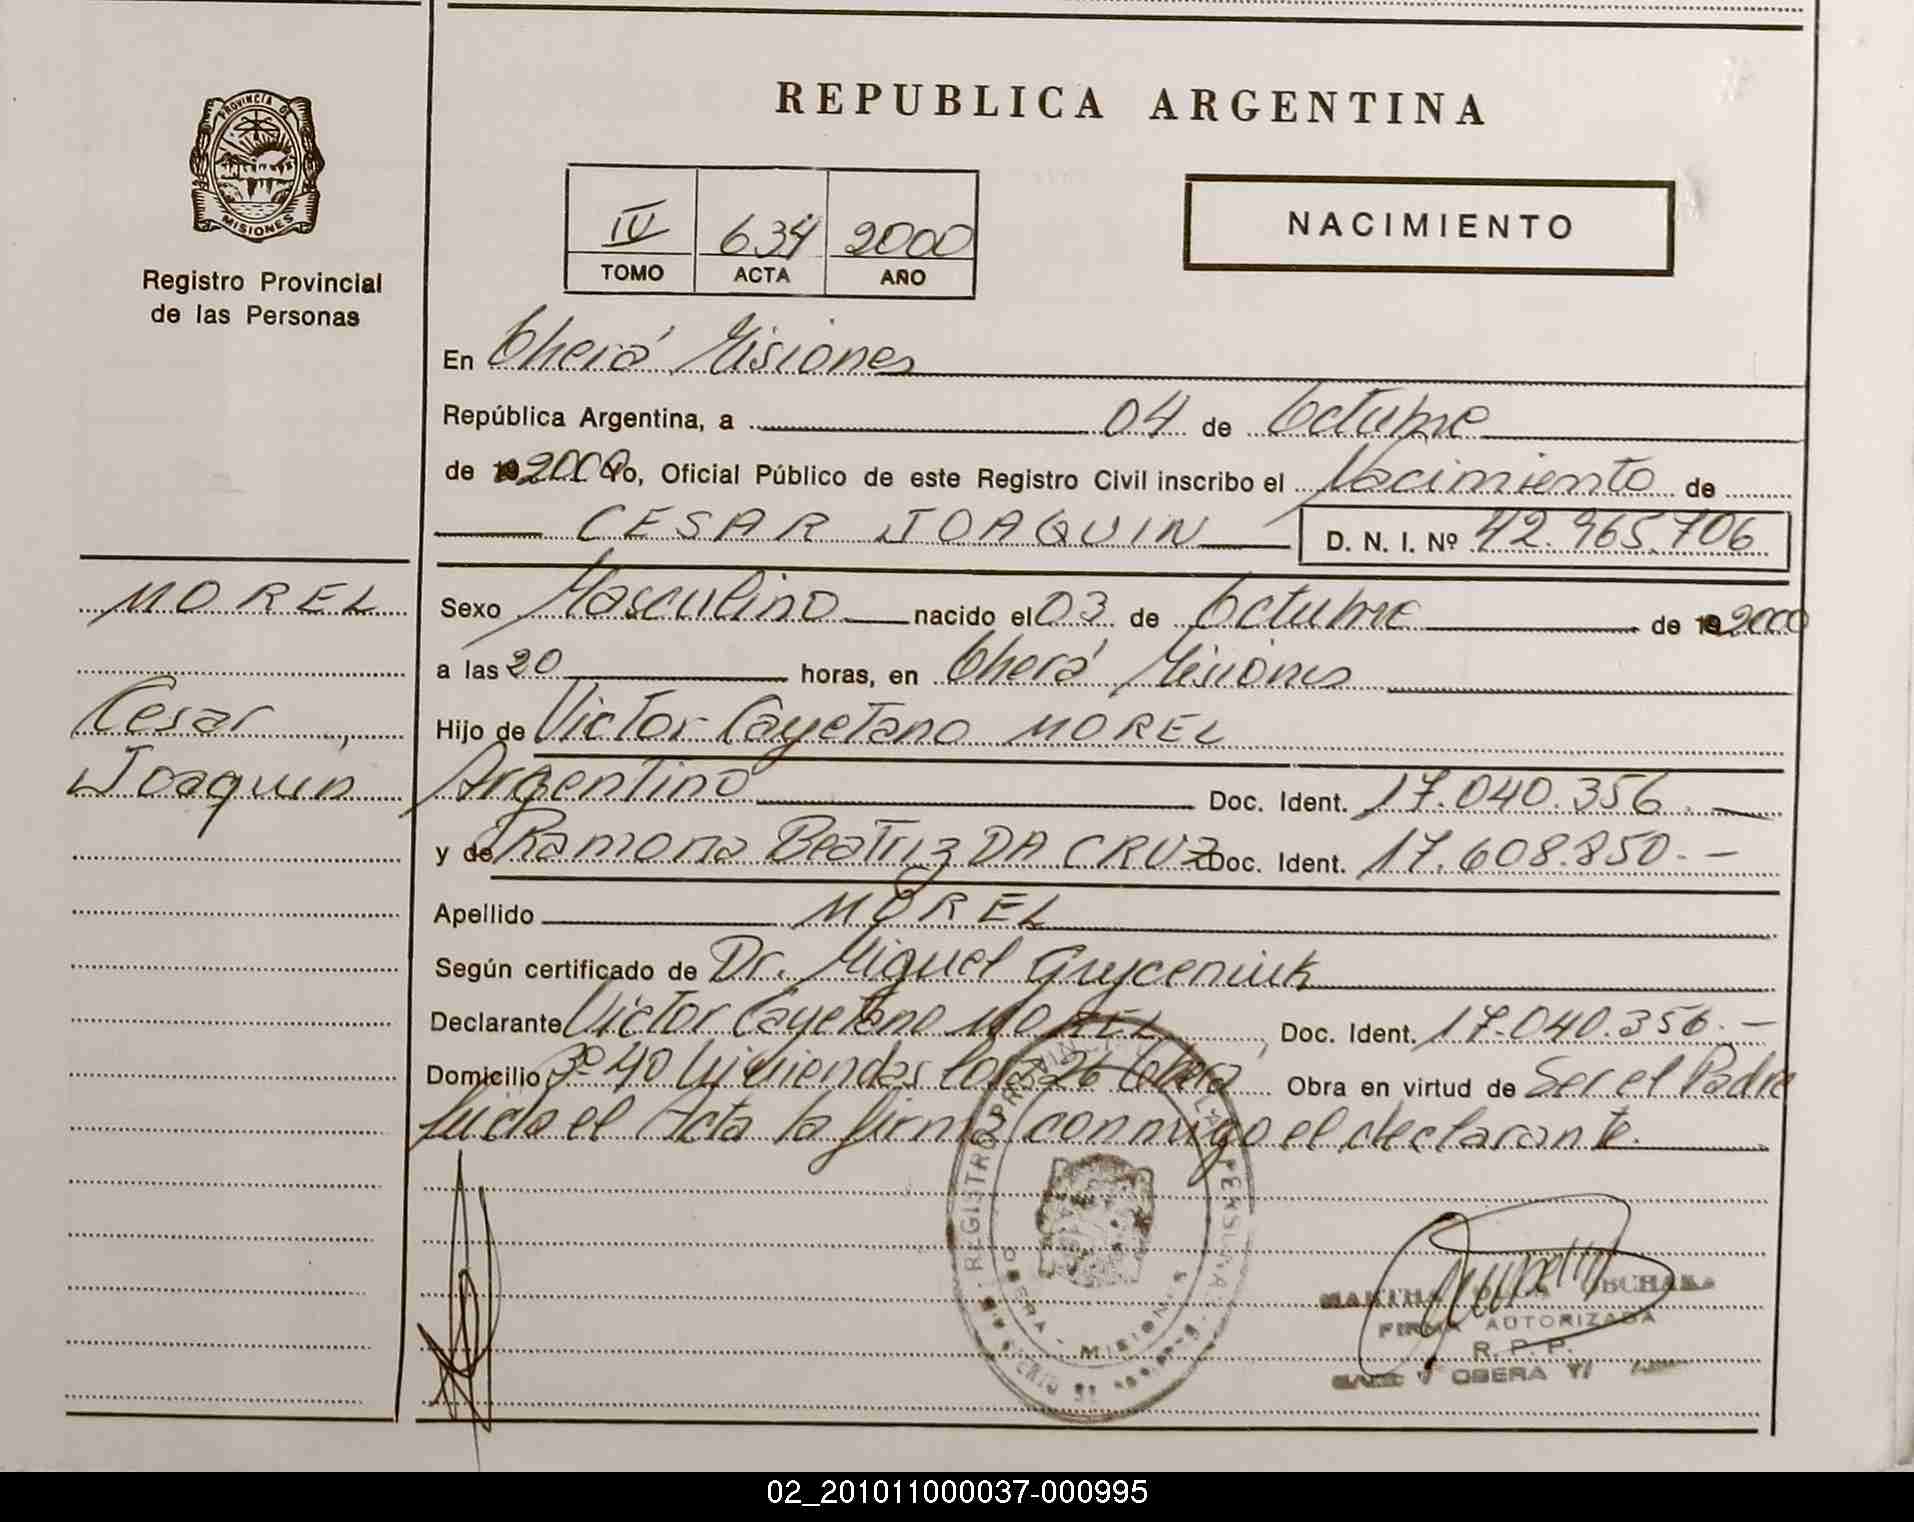 PROVINCIA DE
MISIONES
Registro Provincial
de las Personas
MOREL
Cesar
Joaquin
REPUBLICA ARGENTINA
IV 634 2000
TOMO ACTA AÑO
NACIMIENTO
En Oberá Misiones
República Argentina, a 04 de Octubre
de 19 2000 Yo, Oficial Público de este Registro Civil inscribo el Nacimiento de
CESAR JOAQUIN D. N. I. Nº 42.965.706
Sexo Masculino nacido el 03 de Octubre de 19 2000
a las 20 horas, en Oberá Misiones
Hijo de Victor Cayetano MOREL
Argentino Doc. Ident. 17.040.356.-
y de Ramona Beatriz DA CRUZ Doc. Ident. 17.608.850.-
Apellido MOREL
Según certificado de Dr. Miguel Gryceniuk
Declarante Victor Cayetano MOREL, Doc. Ident. 17.040.356.-
Domicilio 3º 40 Viviendas Casa 26 Oberá Obra en virtud de Ser el Padre
Leída el Acta la firma conmigo el declarante.
REGISTRO PROVINCIAL DE LAS PERSONAS
OBERA - MISIONES
MARTHA
FIRMA AUTORIZADA
R. P. P.
OBERA
02_201011000037-000995